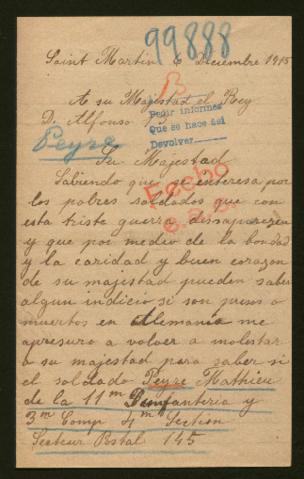 99888
Saint Martin 6 Diciembre 1915
B
A su Majestad el Rey
D. Alfonso
Pedir informes
Que se hace así
Devolver
Peyre
Su Majestad
Sabiendo que se interesa por
los pobres soldados que con
esta triste guerra dessaparezen
y que por medio de la bondad
y la caridad y buen corazon
de su majestad pueden saber
algun indicio si son presos o
muertos en Alemania me
apresuro a volver a molestar
a su majestad para saber si
el soldado Peyre Mathieu
de la 11m Dinfanteria y
3m Comp 4m Section
Secteur Postal 145
Fecho